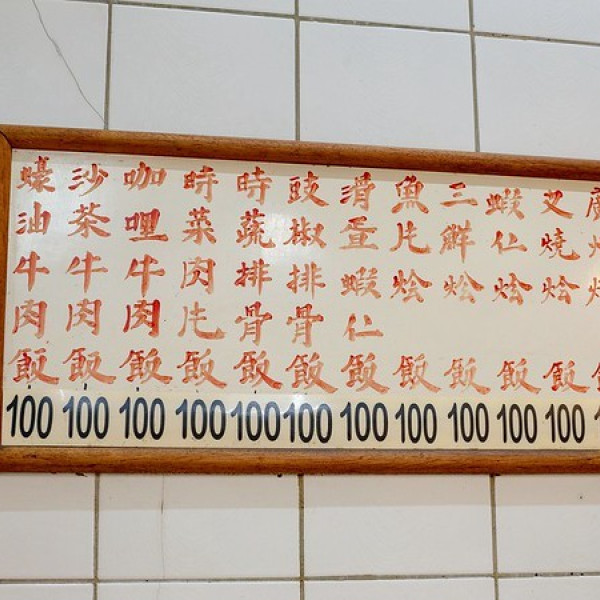 叉燒烩飯
100
蝦仁烩飯
100
三鮮烩飯
100
魚片烩飯
100
滑疍蝦仁飯
100
豉椒排骨飯
100
時蔬排骨飯
100
時菜肉片飯
100
咖哩牛肉飯
100
沙茶牛肉飯
100
蠔油牛肉飯
100